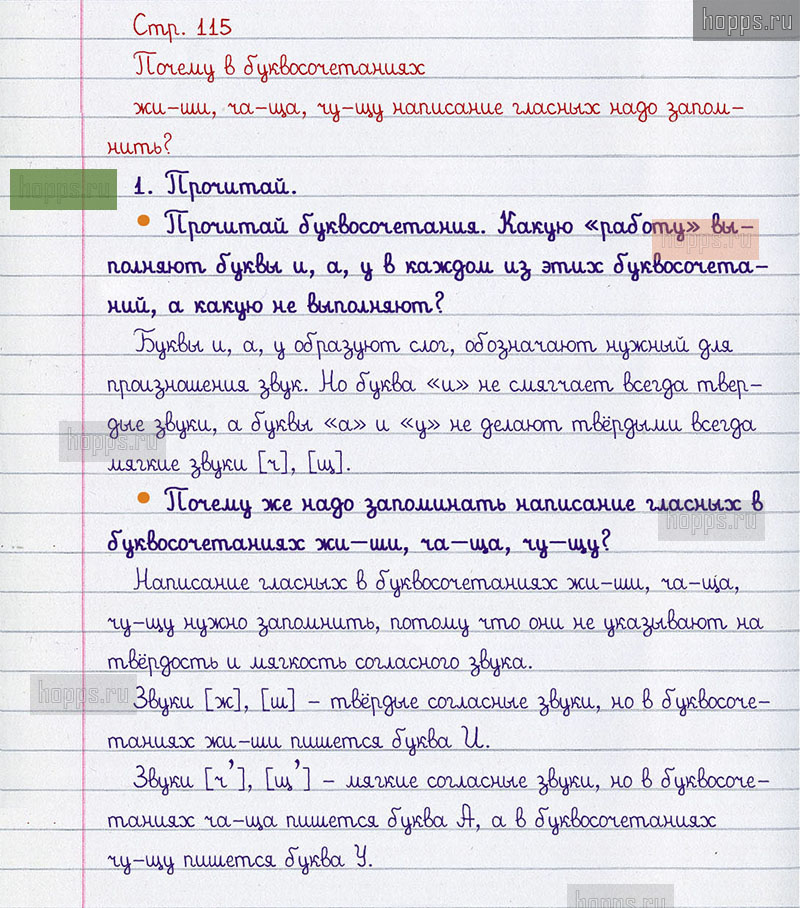 hopps.ru
Стр. 115
Почему в буквосочетаниях
жи–ши, ча–ща, чу–щу написание гласных надо запом–
нить?
hopps.ru
1. Прочитай.
• Прочитай буквосочетания. Какую «работу» вы–
hopps.ru
полняют буквы и, а, у в каждом из этих буквосочета–
ний, а какую не выполняют?
Буквы и, а, у образуют слог, обозначают нужный для
произношения звук. Но буква «и» не смягчает всегда твер–
дые звуки, а буквы «а» и «у» не делают твёрдыми всегда
hopps.ru
мягкие звуки [ч], [щ].
• Почему же надо запоминать написание гласных в
hopps.ru
буквосочетаниях жи–ши, ча–ща, чу–щу?
Написание гласных в буквосочетаниях жи–ши, ча–ща,
чу–щу нужно запомнить, потому что они не указывают на
твёрдость и мягкость согласного звука.
hopps.ru
Звуки [ж], [ш] – твёрдые согласные звуки, но в буквосоче–
таниях жи–ши пишется буква И.
Звуки [ч’], [щ’] – мягкие согласные звуки, но в буквосоче–
таниях ча–ща пишется буква А, а в буквосочетаниях
чу–щу пишется буква У.
hopps.ru